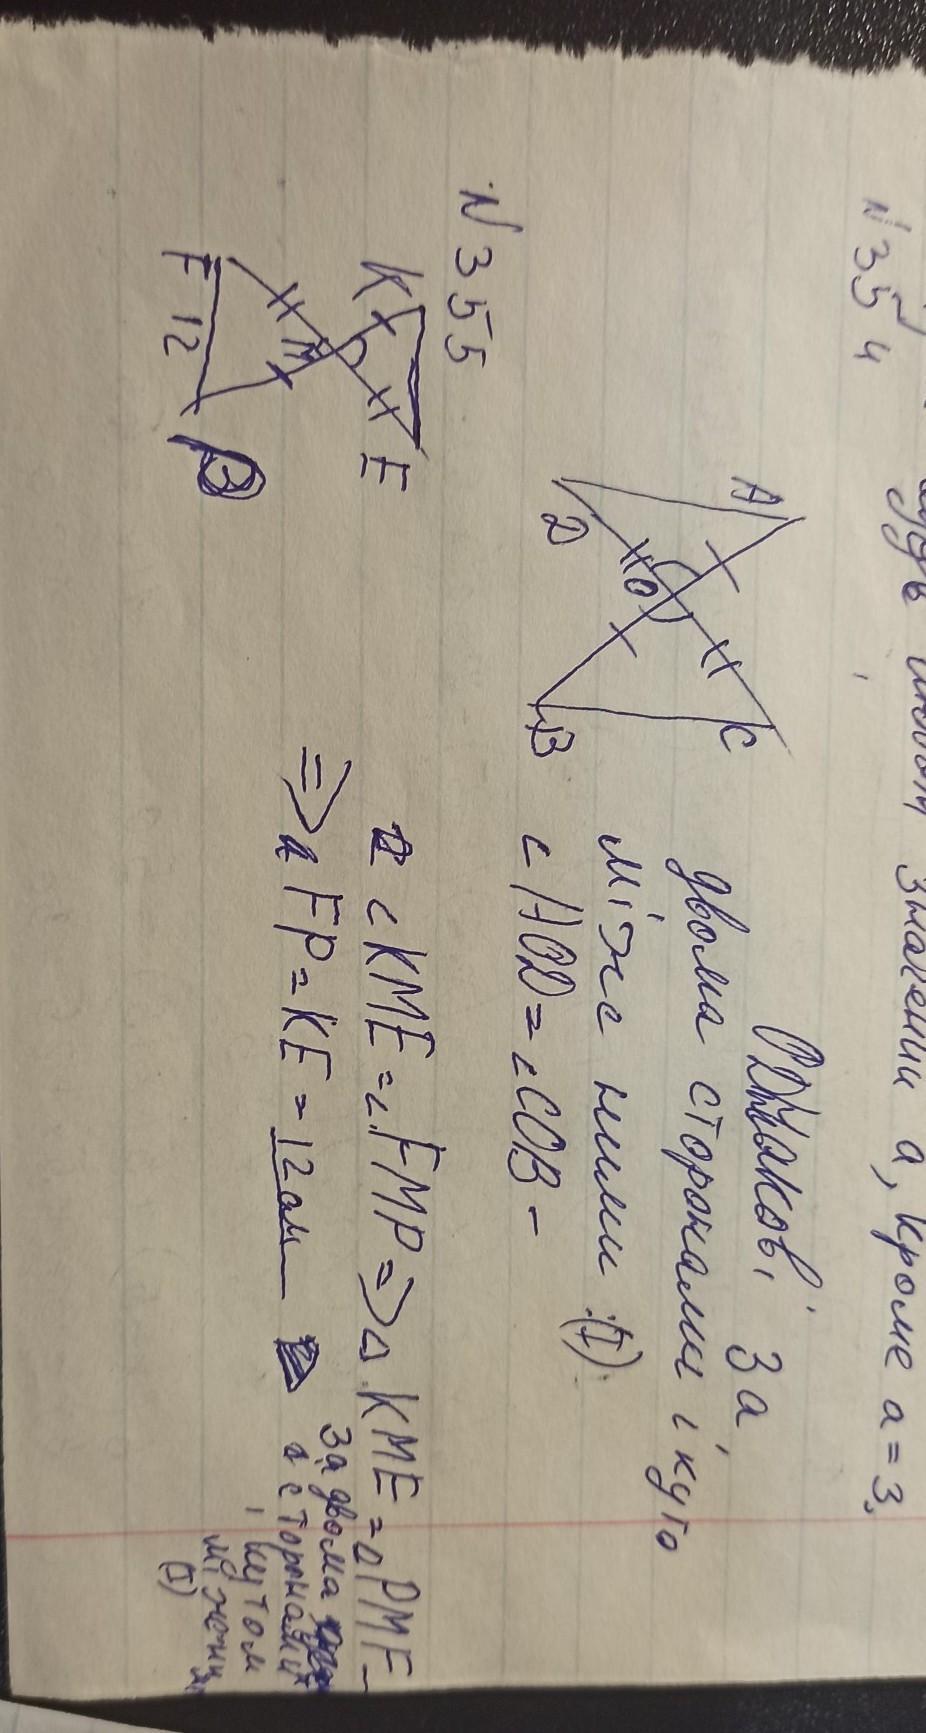 значении а, кроме а = 3.
N 354
A
C
O
D
B
Однакові за
двома сторонами і куто
між ними (I).
∠AOD = ∠COB -
N 355
K
E
M
F
12
P
∠KME = ∠FMP => △KME = △PMF -
=> FP = KE = 12 см
За двома
сторонами
і кутом
між ними
(I)